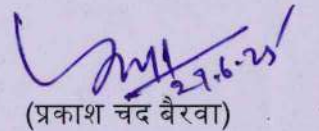 27.6.25
(प्रकाश चंद बैरवा)